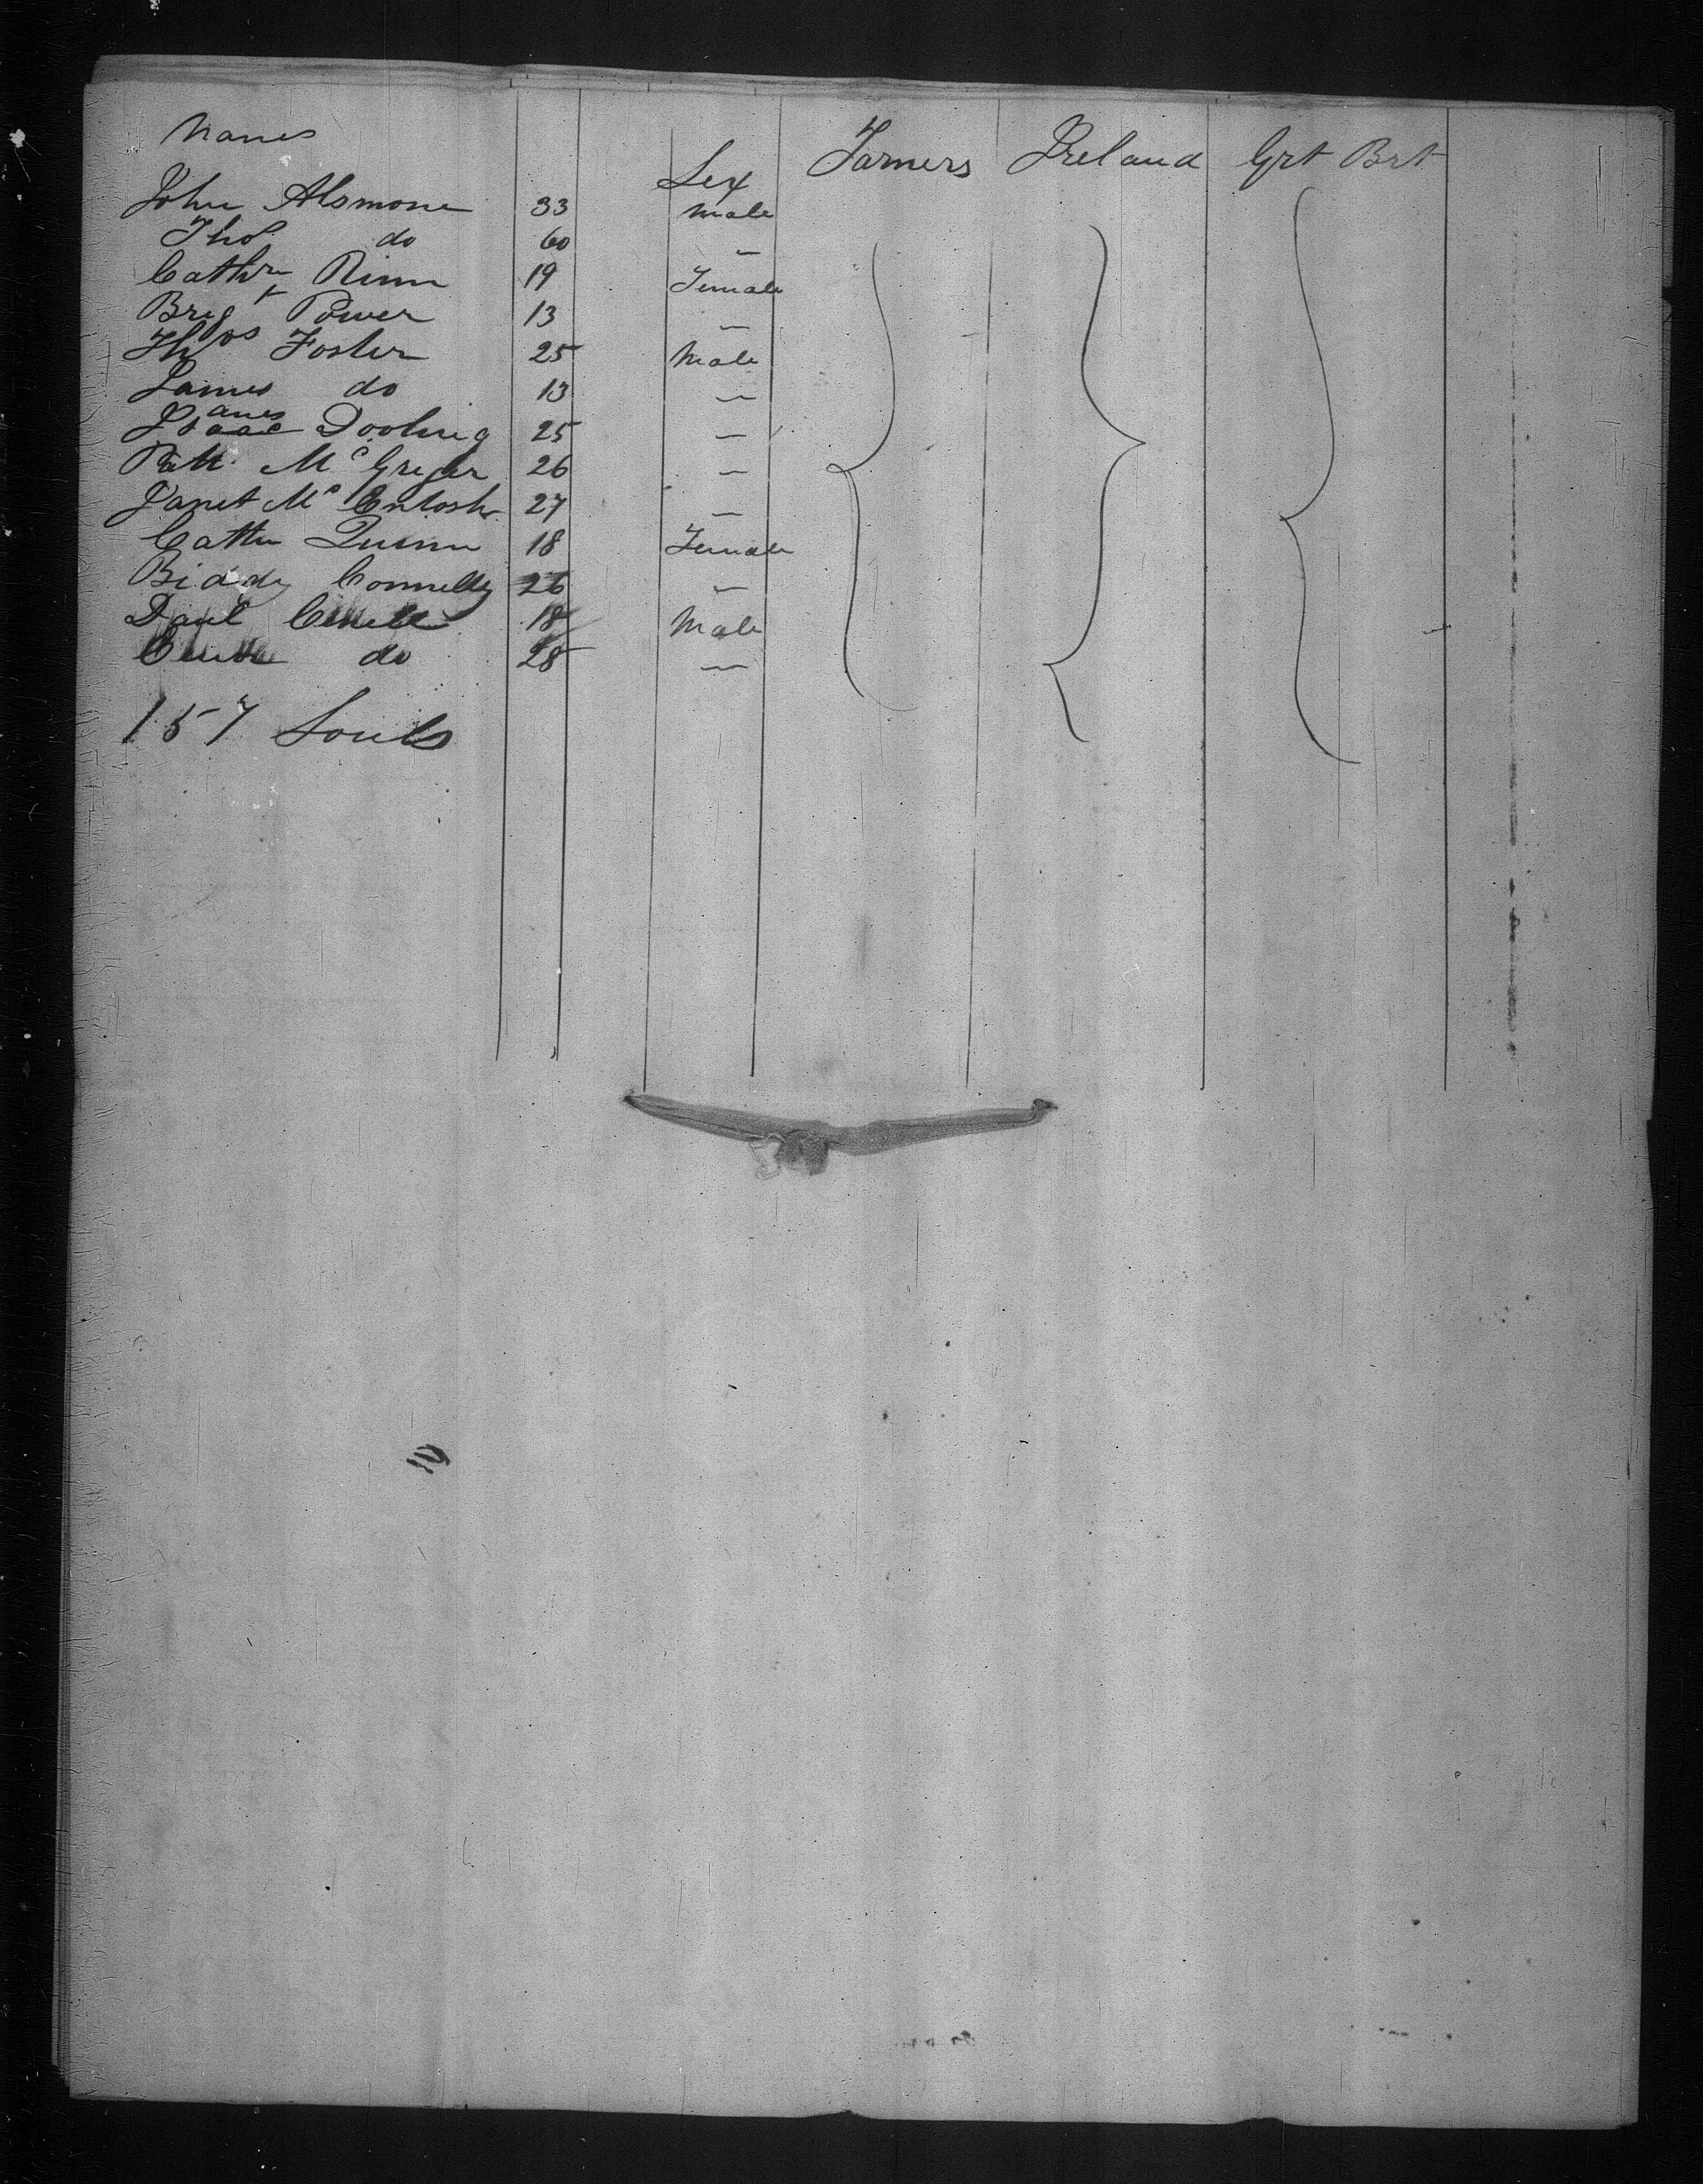 Names Sex Farmers Ireland Grt Brt
John Alsmone 33 Male
Thos do 60 —
Cathrn Rinn 19 Female
Brigt Power 13 —
Thos Foster 25 Male
James do 13 —
Dooling 25 —
Patt. Mc Gregor 26 —
Janet Mc Entosh 27 —
Cathn Quinn 18 Female
Biddy Connelly 26 —
Danl 18 Male
do 28 —
157 Souls